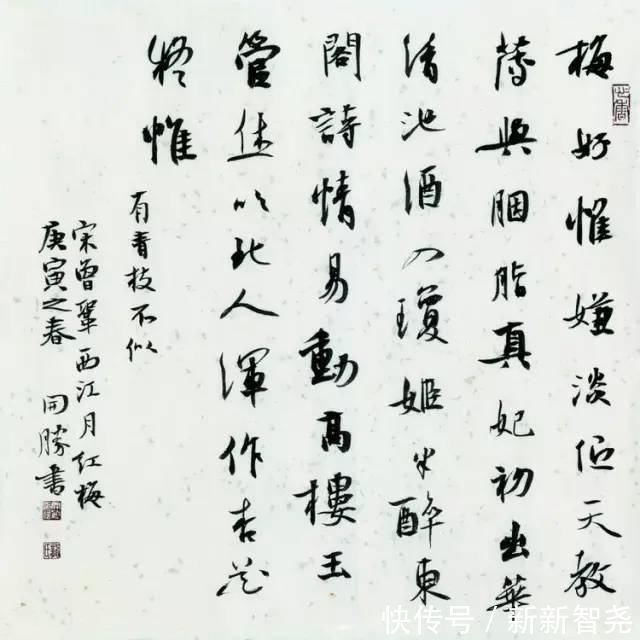 梅好惟嫌淡伫天教
薄與胭脂真妃初出華
清池酒入瓊姬半醉東
閣詩情易動高樓玉
管休吹北人渾作杏花
疑惟
有青枝不似
宋曾鞏西江月红梅
庚寅之春 開勝書
快传号／新新智尧